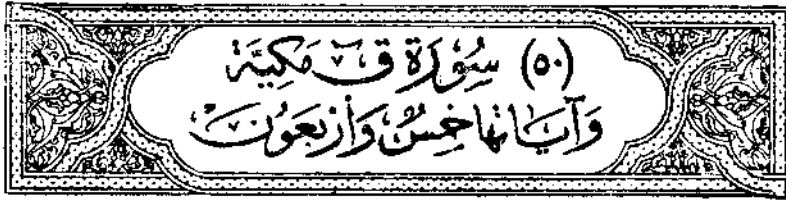 (٥٠) سُوْرَةِ قٓ مَكِيَّة
وَآيَاتُهَا خَمِسٌ وَأَرْبَعُونَ